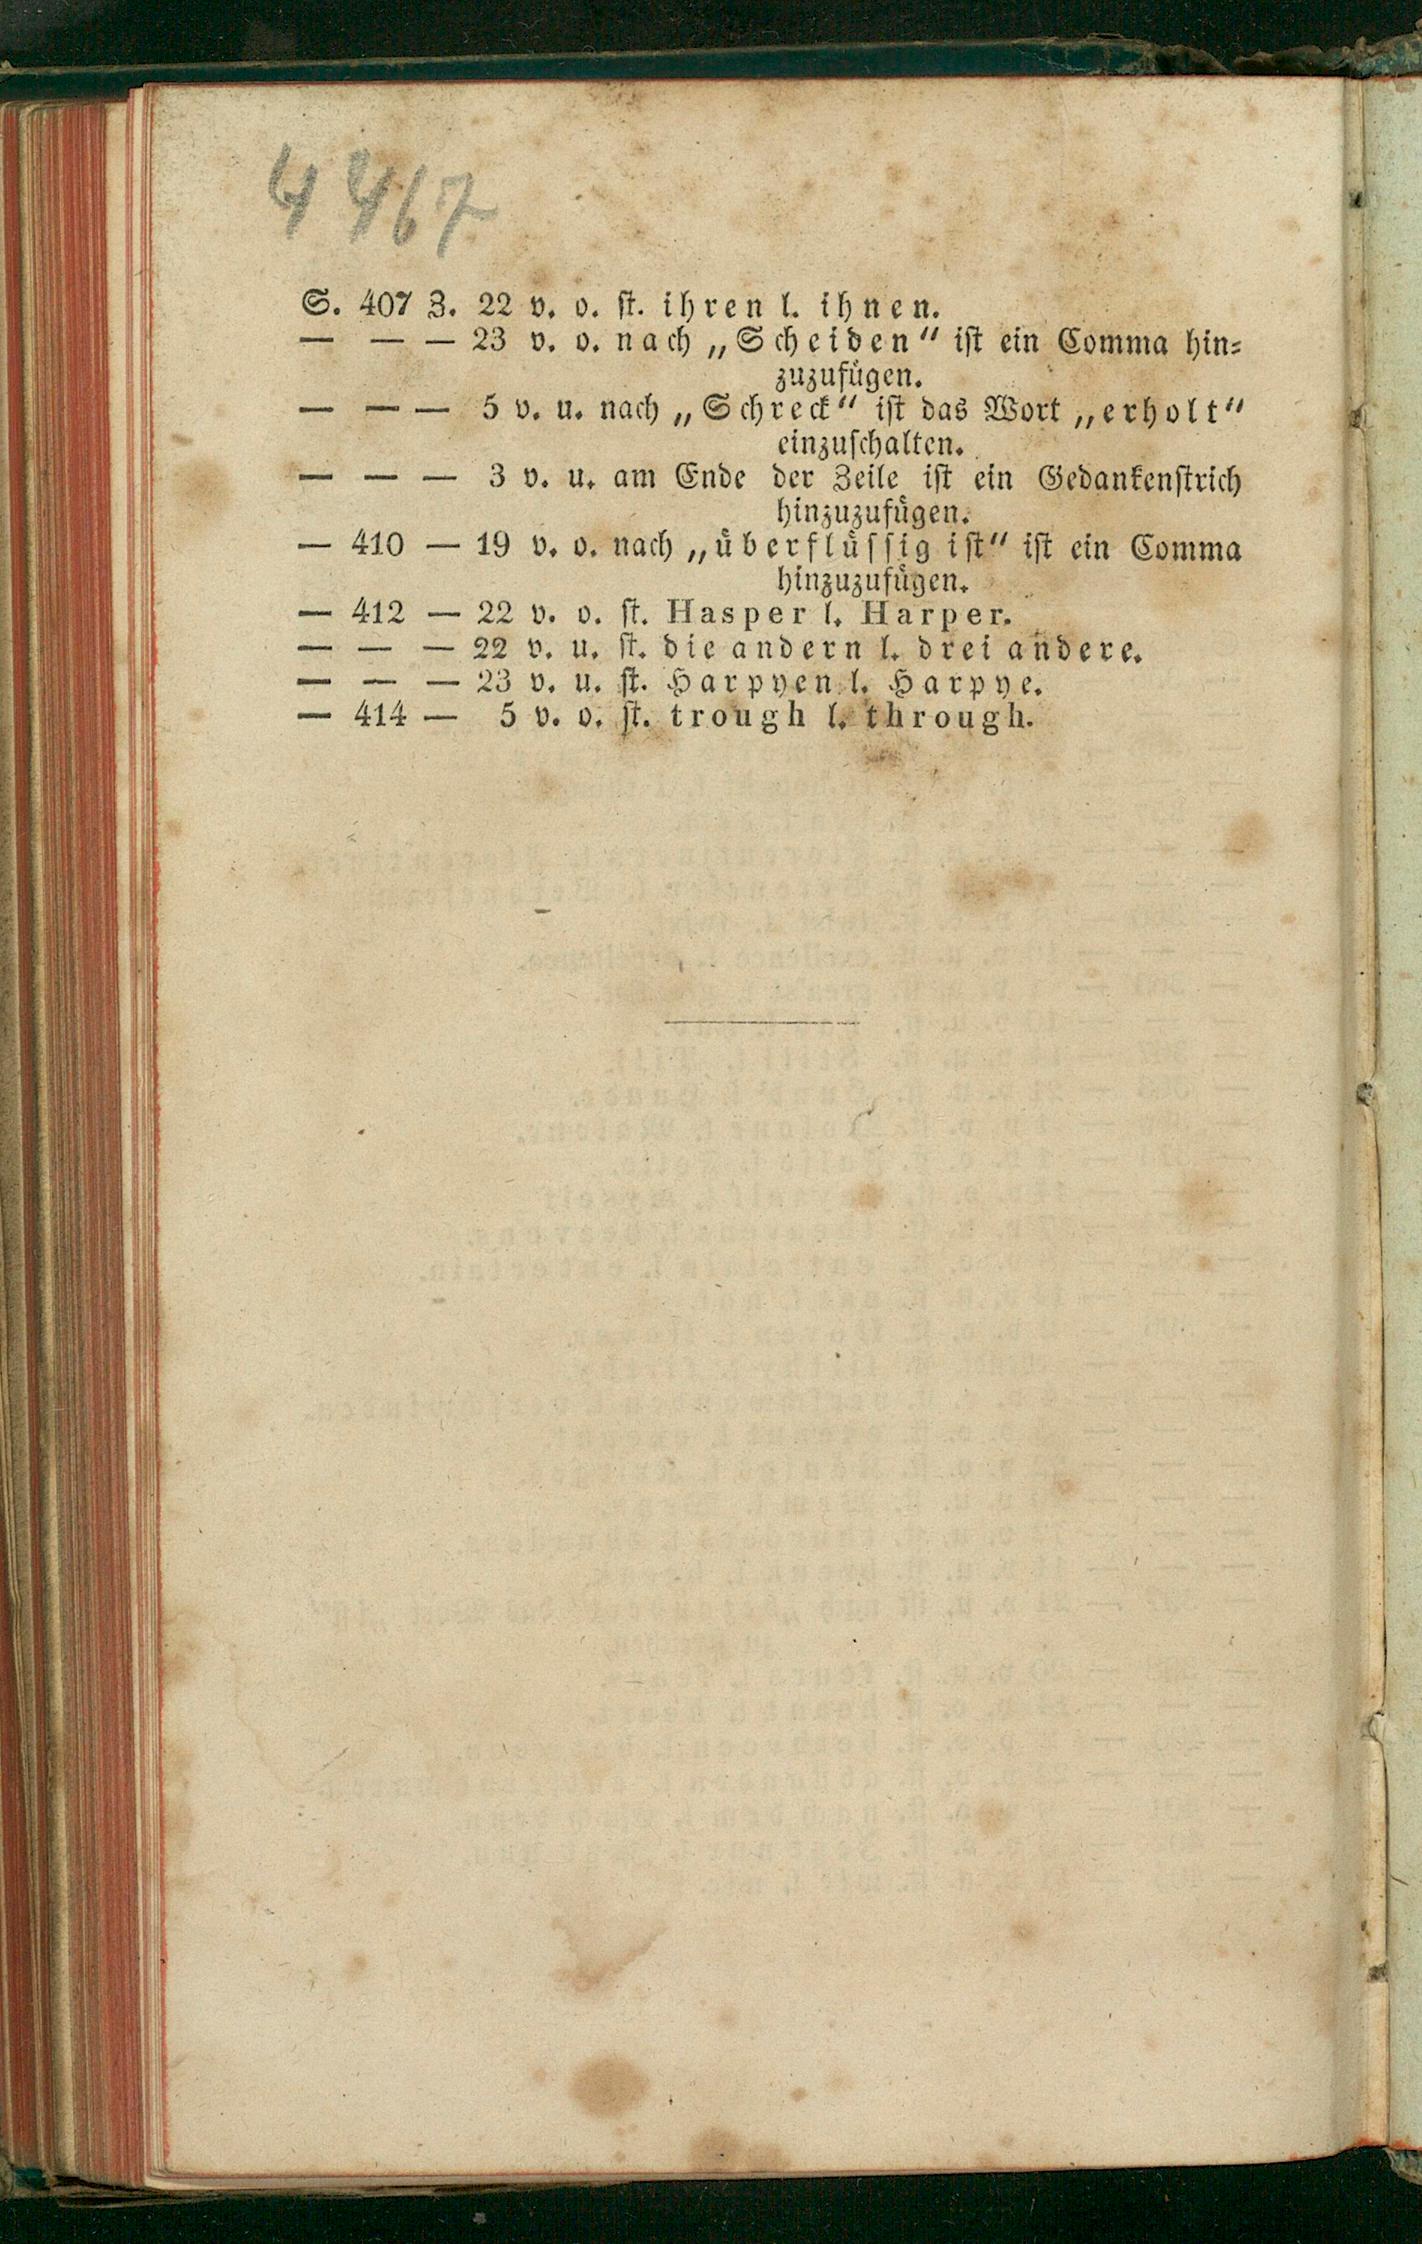 4467
S. 407 Z. 22 v. o. ſt. ihren l. ihnen.
— — — 23 v. o. nach „Scheiden“ iſt ein Comma hin⸗
zuzufügen.
— — — 5 v. u. nach „Schreck“ iſt das Wort „erholt“
einzuſchalten.
— — — 3 v. u. am Ende der Zeile iſt ein Gedankenſtrich
hinzuzufügen.
— 410 — 19 v. o. nach „überflüſſig iſt“ iſt ein Comma
hinzuzufügen.
— 412 — 22 v. o. ſt. Hasper l. Harper.
— — — 22 v. u. ſt. die andern l. drei andere.
— — — 23 v. u. ſt. Harpyen l. Harpye.
— 414 — 5 v. o. ſt. trough l. through.